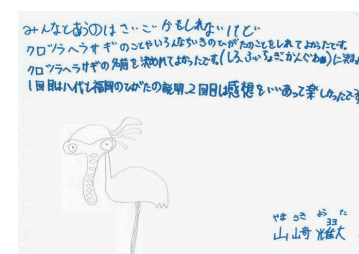 みんなとあうのはさいごかもしれないけど
クロツラヘラサギのことやいろんなちいきのひがたのことをしれてよかったです。
クロツラヘラサギの名前を決めれてよかったです。(しろ、ふぃ
1回目は八代と福岡のひがたの説明、2回目は感想をいいあって楽しかったです
やまさき
山崎